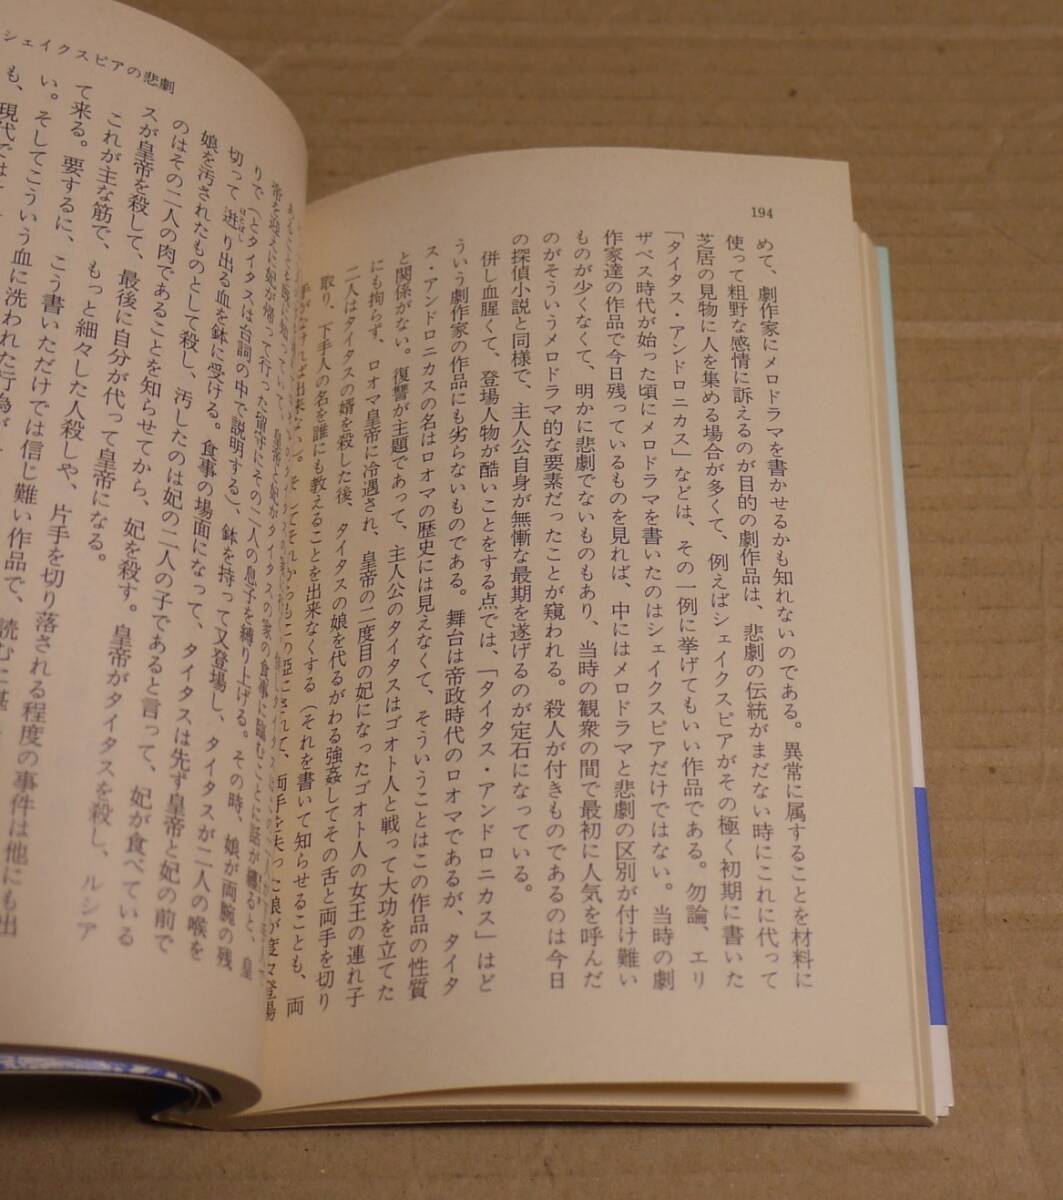 194
めて、劇作家にメロドラマを書かせるかも知れないのである。異常に属することを材料に
使って粗野な感情に訴えるのが目的の劇作品は、悲劇の伝統がまだない時にこれに代って
芝居の見物に人を集める場合が多くて、例えばシェイクスピアがその極く初期に書いた
「タイタス・アンドロニカス」などは、その一例に挙げてもいい作品である。勿論、エリ
ザベス時代が始った頃にメロドラマを書いたのはシェイクスピアだけではない。当時の劇
作家達の作品で今日残っているものを見れば、中にはメロドラマと悲劇の区別が付け難い
ものが少くなくて、明かに悲劇でないものもあり、当時の観衆の間で最初に人気を呼んだ
のがそういうメロドラマ的な要素だったことが窺われる。殺人が付きものであるのは今日
の探偵小説と同様で、主人公自身が無慚な最期を遂げるのが定石になっている。
併し血腥くて、登場人物が酷いことをする点では、「タイタス・アンドロニカス」はど
ういう劇作家の作品にも劣らないものである。舞台は帝政時代のロオマであるが、タイタ
ス・アンドロニカスの名はロオマの歴史には見えなくて、そういうことはこの作品の性質
と関係がない。復讐が主題であって、主人公のタイタスはゴオト人と戦って大功を立てた
にも拘らず、ロオマ皇帝に冷遇され、皇帝の二度目の妃になったゴオト人の女王の連れ子
二人はタイタスの婿を殺した後、タイタスの娘を代るがわる強姦してその舌と両手を切り
取り、下手人の名を誰にも教えることを出来なくする（それを書いて知らせることも、両
手がなければ出来ない）。
両手を失った娘が度々登場
シェイクスピアの悲劇
帝を迎えに妃が帰って行った留守にその二人の息子を縛り上げる。その時、娘が両腕の残
りで（とタイタスは台詞の中で説明する）、鉢を持って又登場し、タイタスが二人の喉を
切って迸り出る血を鉢に受ける。食事の場面になって、タイタスは先ず皇帝と妃の前で
娘を汚されたものとして殺し、汚したのは妃の二人の子であると言って、妃が食べている
のはその二人の肉であることを知らせてから、妃を殺す。皇帝がタイタスを殺し、ルシア
スが皇帝を殺して、最後に自分が代って皇帝になる。
これが主な筋で、もっと細々した人殺しや、片手を切り落される程度の事件は他にも出
て来る。要するに、こう書いただけでは信じ難い作品で、読むに
い。そしてこういう血に洗われた行為が
も、現代では